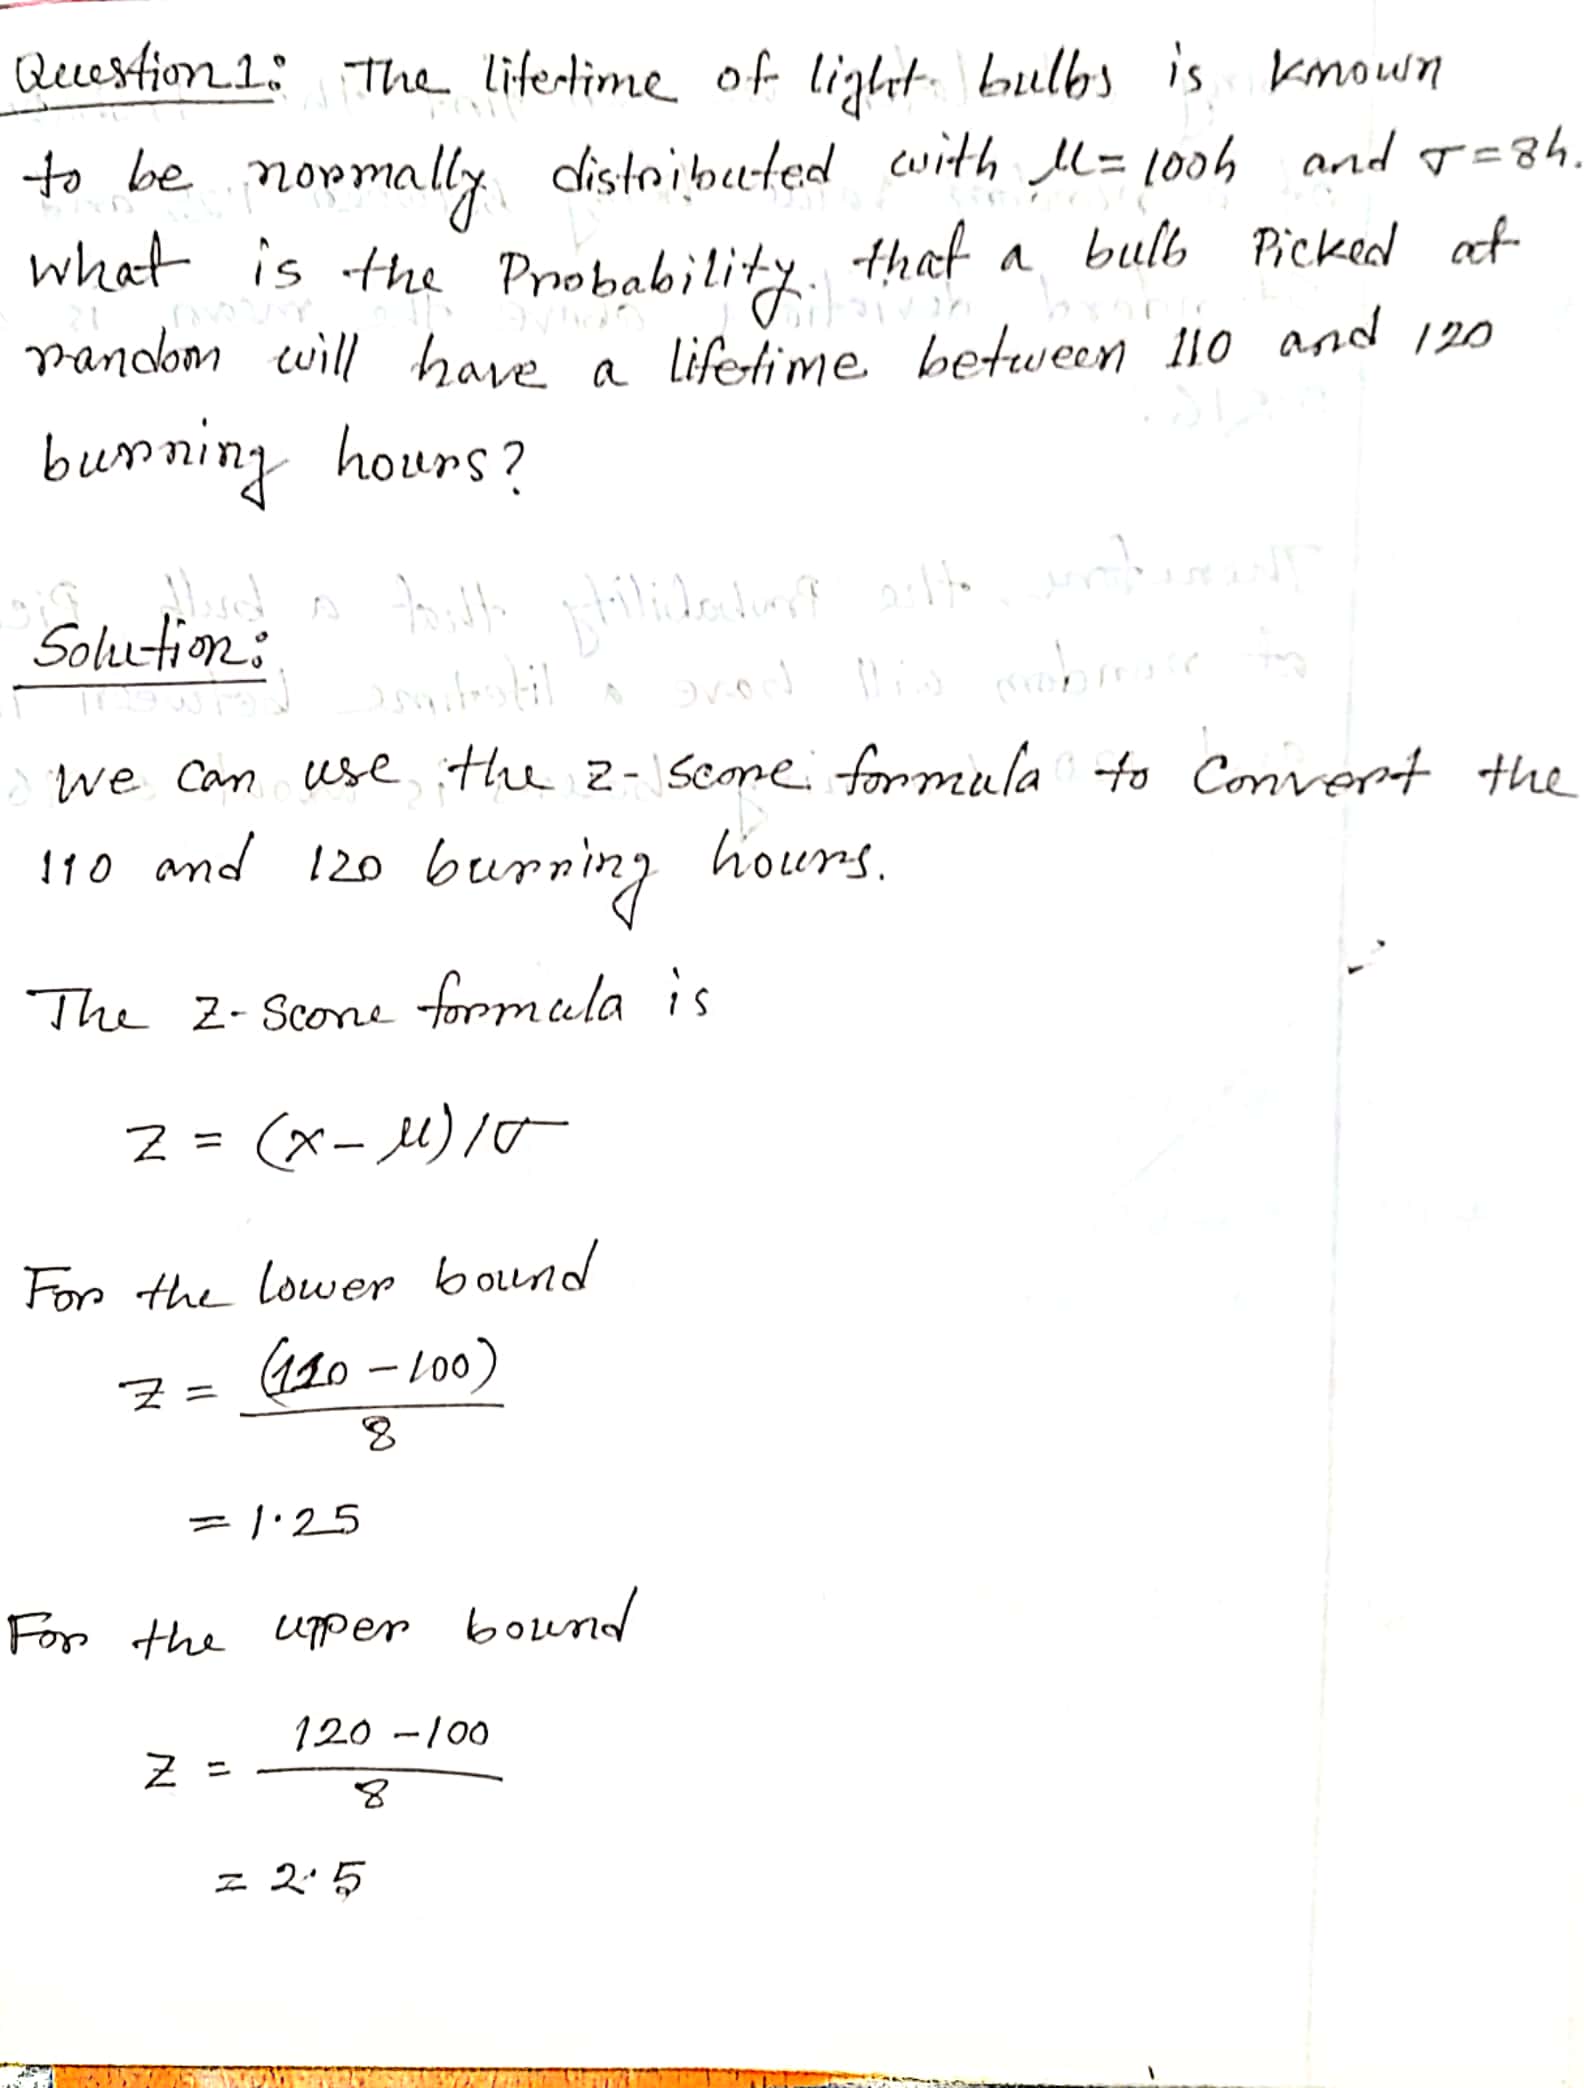 Question 1: The lifetime of light bulbs is known
to be normally distributed with μ = 100h and σ = 8h.
what is the Probability that a bulb Picked at
random will have a lifetime between 110 and 120
burning hours?
Solution:
We can use the z-score formula to Convert the
110 and 120 burning hours.
The z-score formula is
z = (x - μ) / σ
For the lower bound
z = (110 - 100)
8
= 1.25
For the upper bound
z = 120 - 100
8
= 2.5